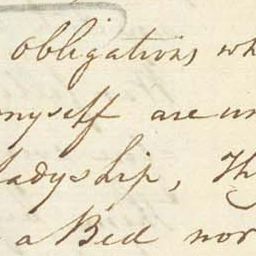 obligations wh
myself are un
ladyship, Th
a Bed nor